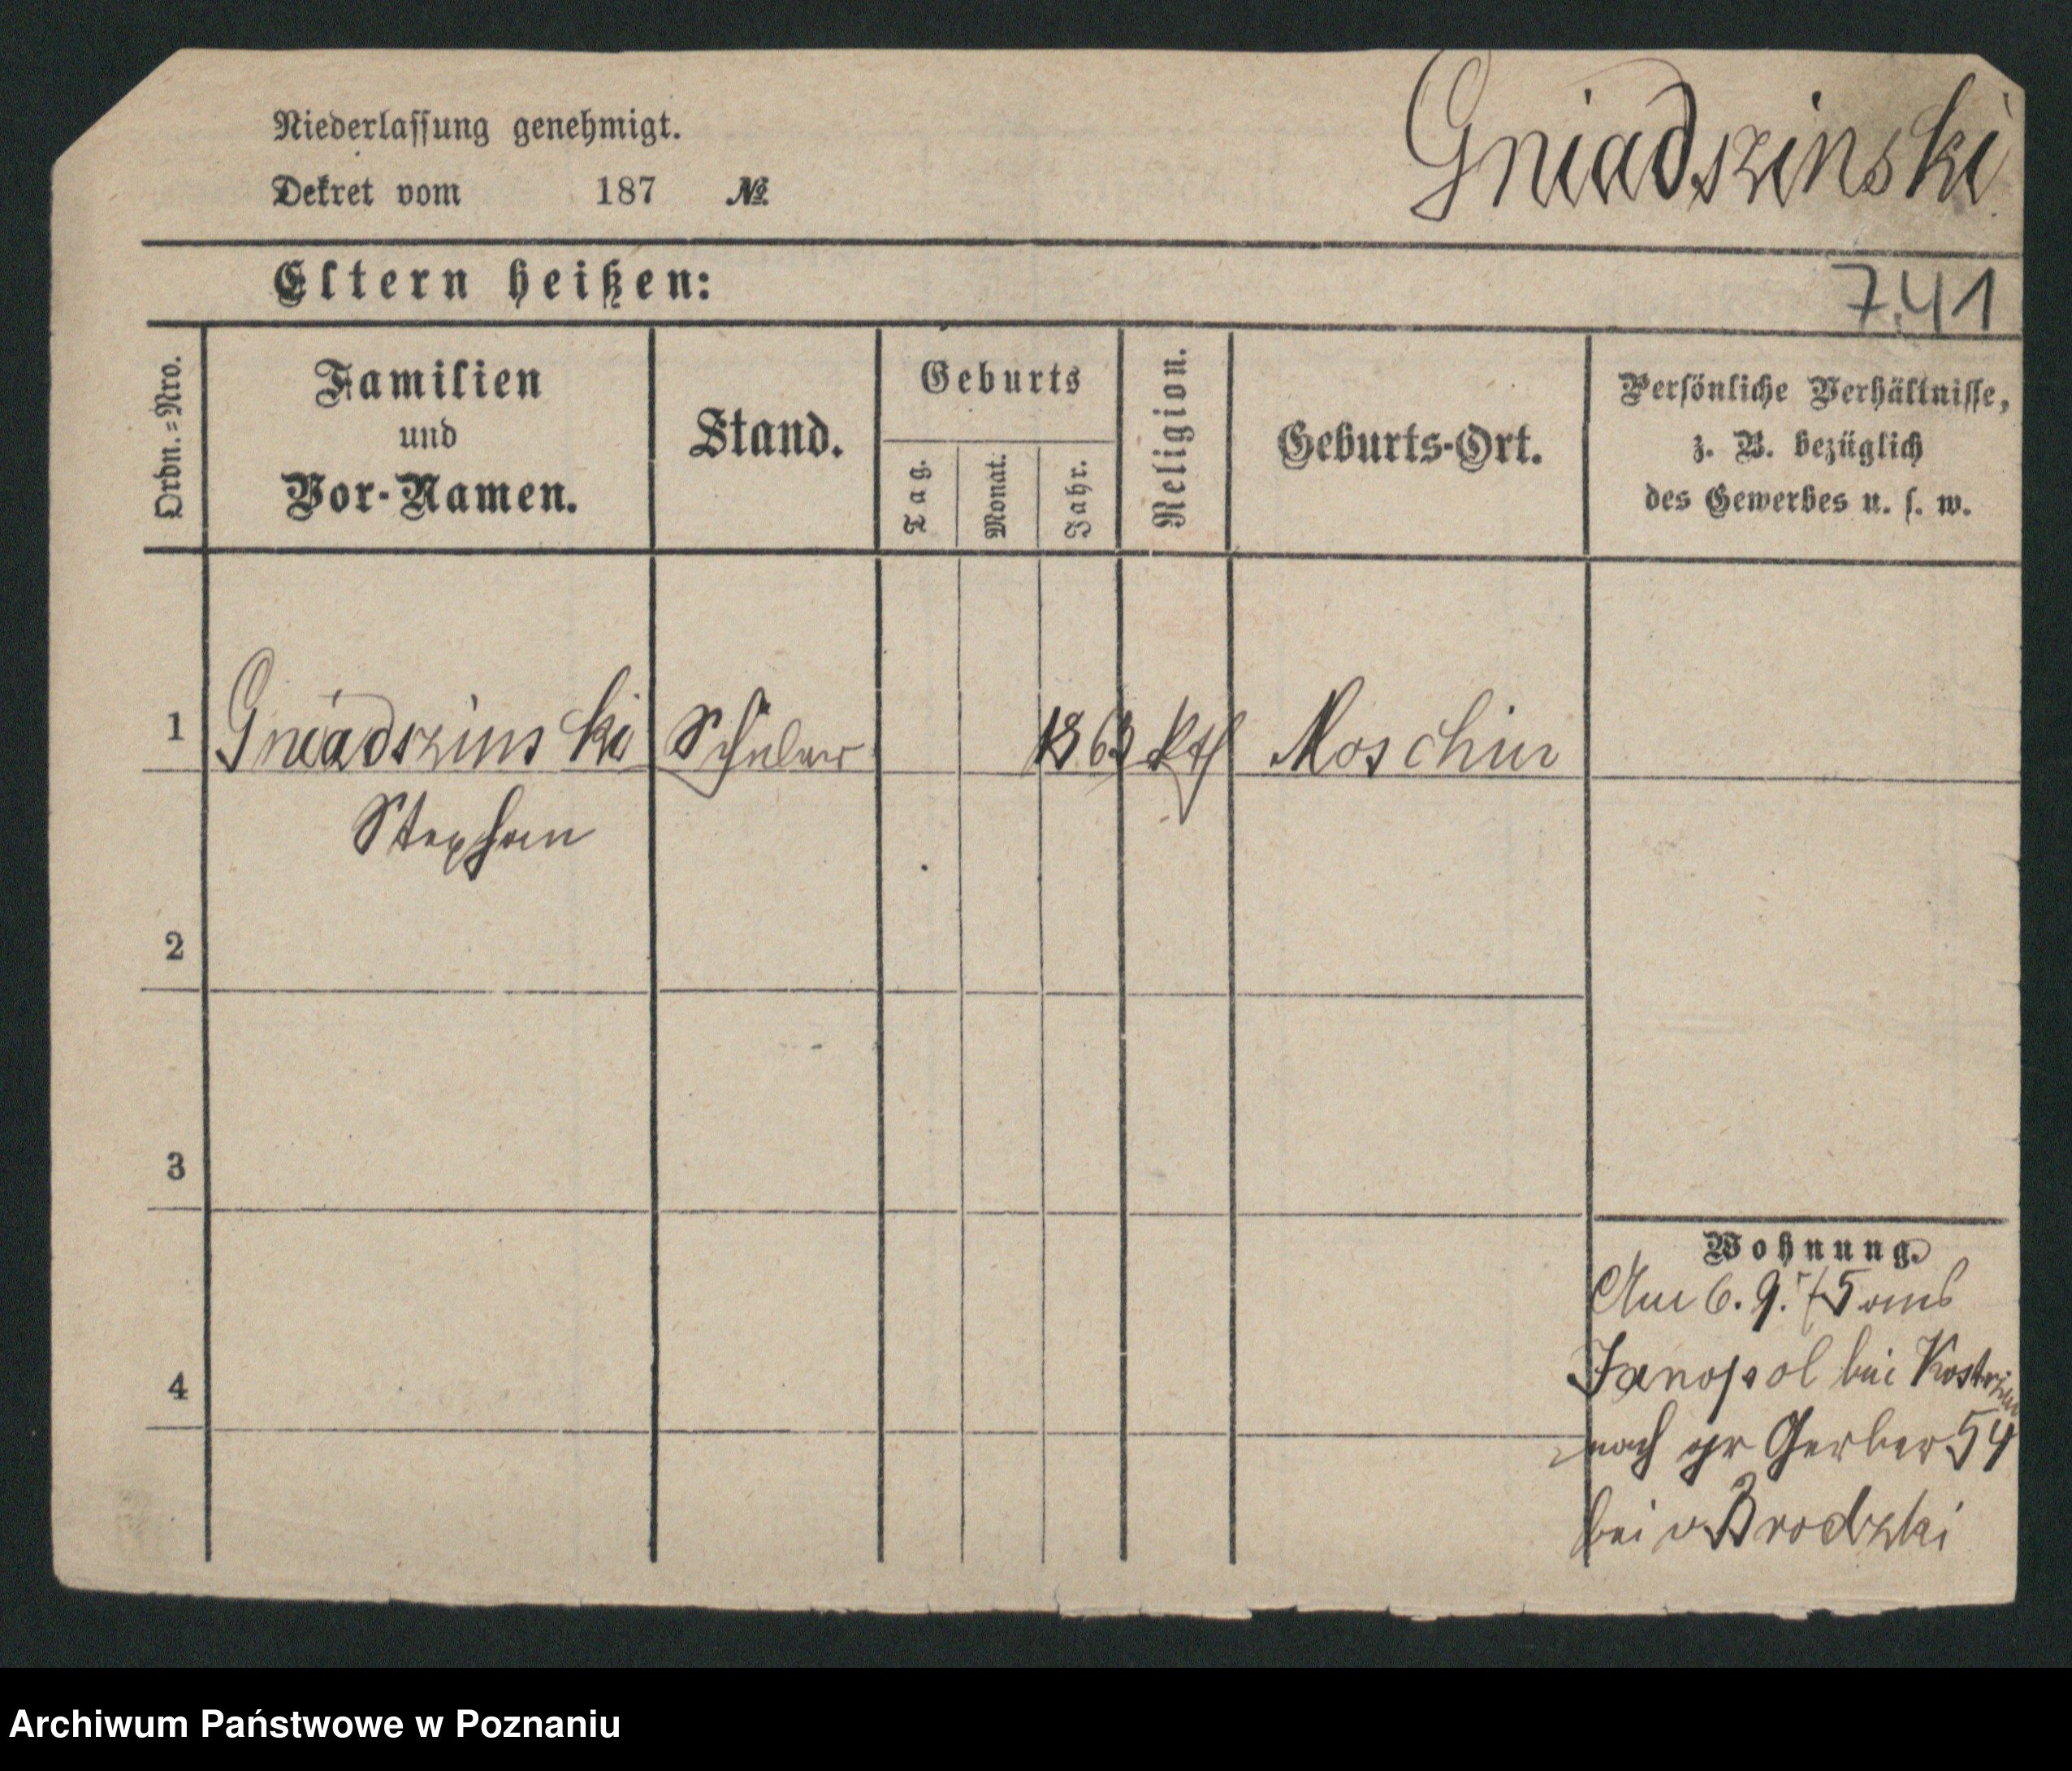 Gniadszinski
Niederlassung genehmigt.
Dekret vom 187 №
Eltern heißen:
741
Ordn.=Nro.
Familien
und
Vor-Namen.
Stand.
Geburts
Tag.
Monat.
Jahr.
Religion.
Geburts-Ort.
Persönliche Verhältnisse,
z. B. bezüglich
des Gewerbes u. s. w.
1 Gniadszinski Schüler 1863 kth Moschin
Stephan
2
3
Wohnung.
Am 6. 9. 75 aus
Janopol bei Kostrzin
4
nach gr Gerber 54
bei v Brodzki
Archiwum Państwowe w Poznaniu